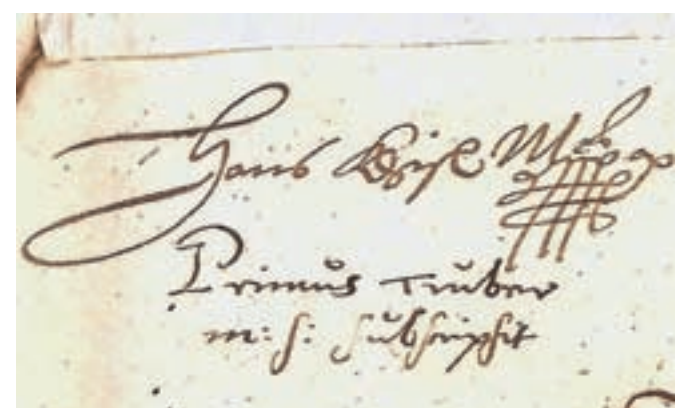 Hans Kisl Mppa
Primus Truber
m: s: subscripsit